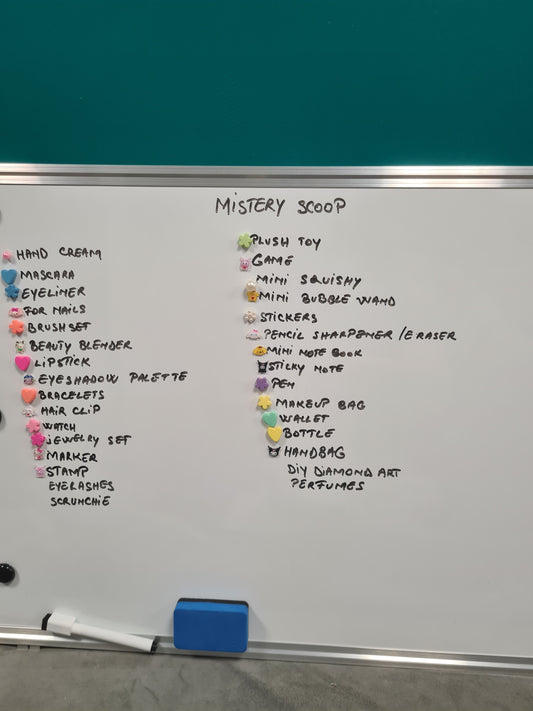 MiSTERY SCOOP
HAND CREAM
MASCARA
EYELINER
FOR NAILS
BRUSH SET
BEAUTY BLENDER
LIPSTICK
EYESHADOW PALETTE
BRACELETS
HAIR CLIP
WATCH
JEWELRY SET
MARKER
STAMP
EYELASHES
SCRUNCHiE
PLUSH TOY
GAME
MINI SQUISHY
MINI BUBBLE WAND
STICKERS
PENCIL SHARPENER / ERASER
MINI NOTE BOOK
STICKY NOTE
PEN
MAKEUP BAG
WALLET
BOTTLE
HANDBAG
DiY DIAMOND ART
PERFUMES